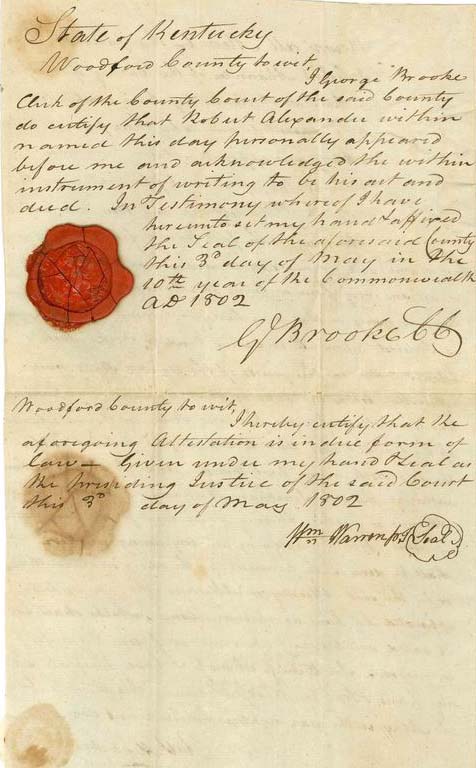 State of Kentucky
Woodford County to wit,
I George Brooke
Clerk of the County Court of the said County
do certify that Robert Alexander within
named this day personally appeared
before me and acknowledged the within
instrument of writing to be his act and
deed. In Testimony whereof I have
hereunto set my hand & affixed
the Seal of the aforesaid County
this 3d day of May in the
10th year of the Commonwealth
AD 1802
G Brooke CC
Woodford County to wit,
I hereby certify that the
aforegoing Attestation is in due form of
law — Given under my hand & Seal as
the presiding Justice of the said Court
this 3d day of May 1802
Wm Warren Seal